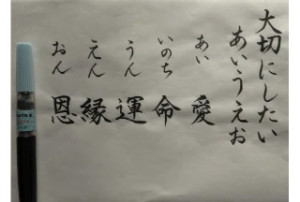 大切にしたい
あいうえお
あい 愛
いのち 命
うん 運
えん 縁
おん 恩